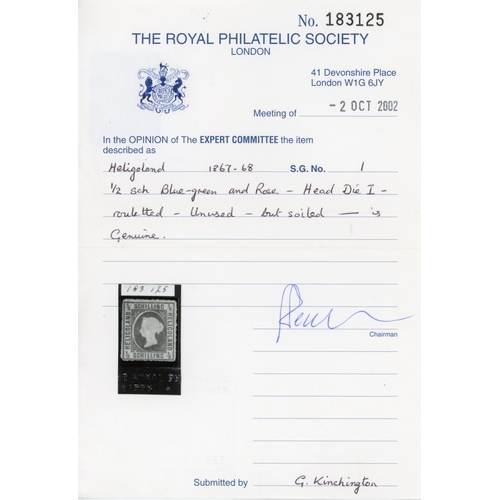 No. 183125
THE ROYAL PHILATELIC SOCIETY
LONDON
41 Devonshire Place
London W1G 6JY
Meeting of - 2 OCT 2002
In the OPINION of The EXPERT COMMITTEE the item
described as
Heligoland 1867-68 S.G. No. 1
1/2 sch Blue-green and Rose - Head Die I -
rouletted - Unused - but soiled — is
Genuine.
183 125
SCHILLING
HELIGOLAND
HELIGOLAND
SCHILLING
Chairman
Submitted by G. Kinchington